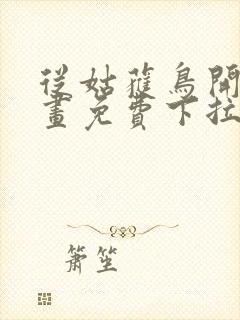 從姑蒦鳥開
畫免費下拉
簫笙